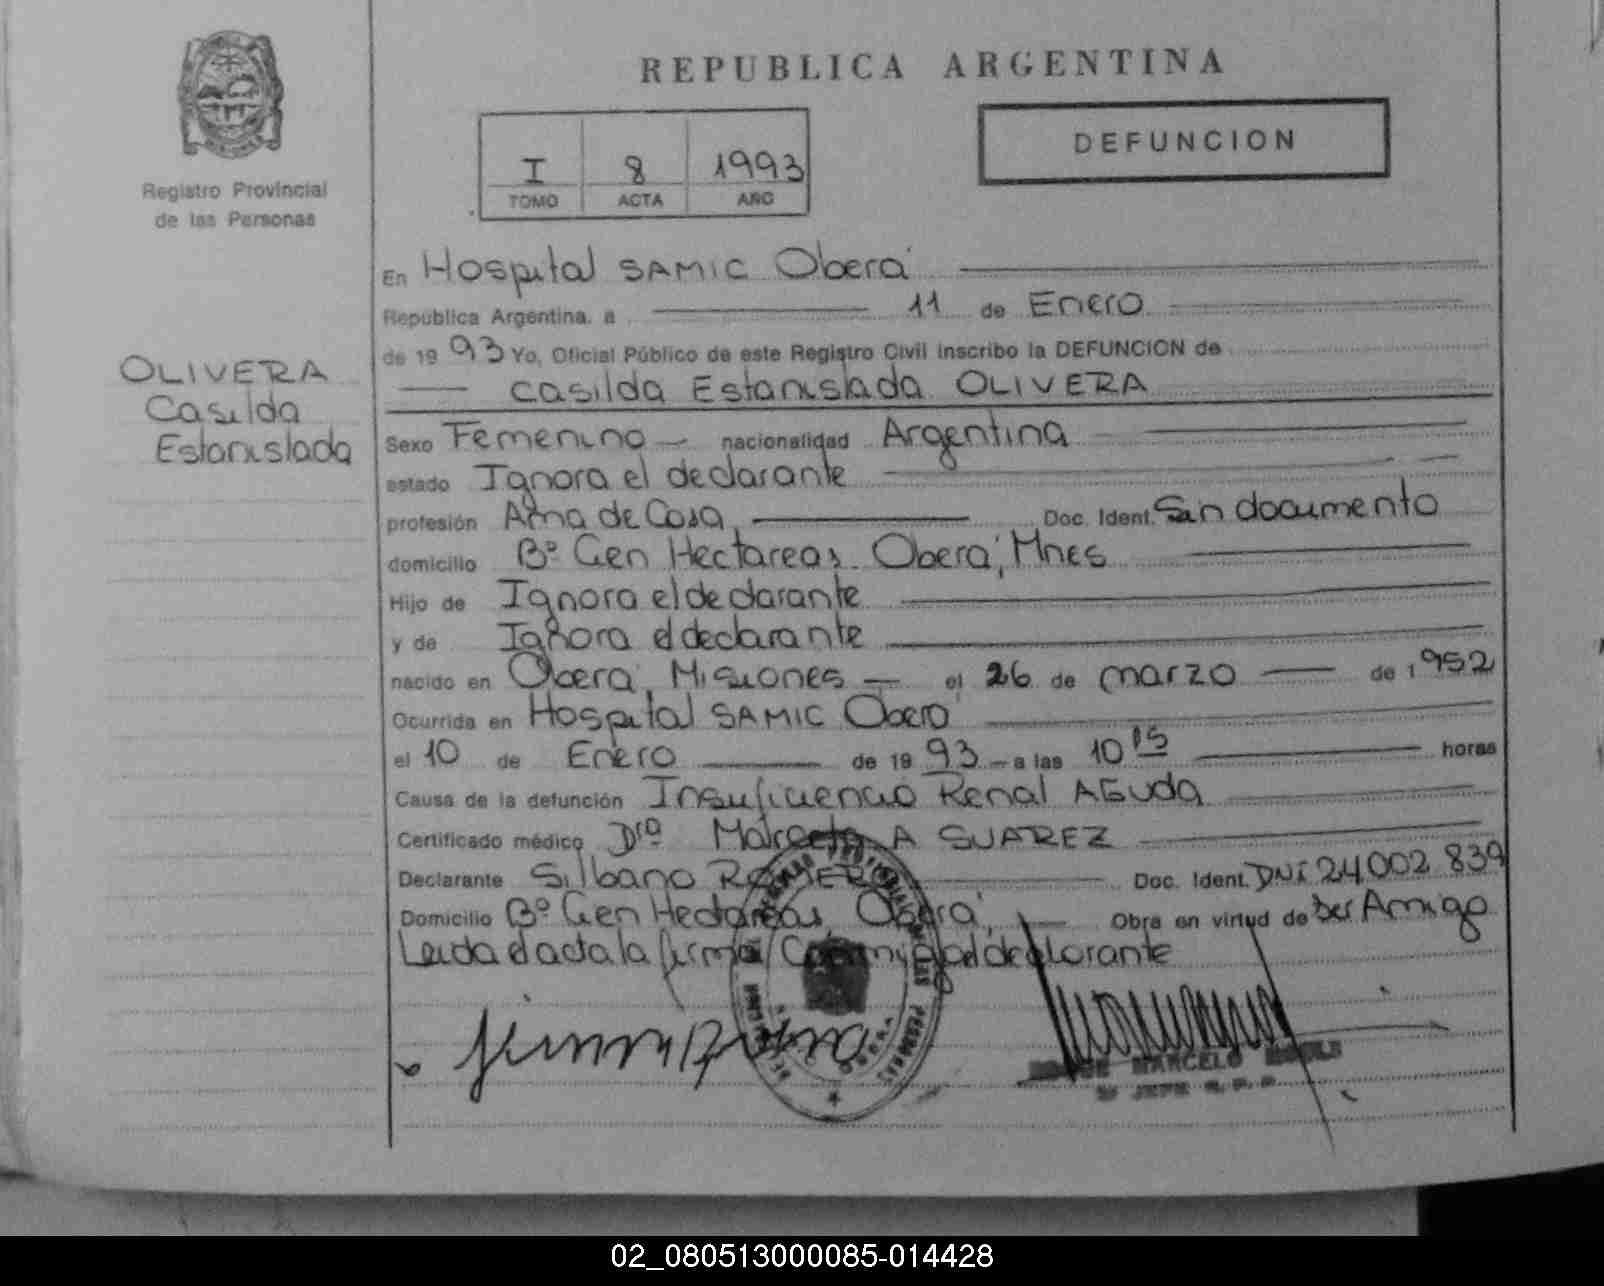 REPUBLICA ARGENTINA
I 8 1993
TOMO ACTA AÑO
DEFUNCION
Registro Provincial
de las Personas
OLIVERA
Casilda
Estanislada
En Hospital SAMIC Oberá
Republica Argentina, a 11 de Enero
de 1993 Yo, Oficial Público de este Registro Civil inscribo la DEFUNCION de
Casilda Estanislada OLIVERA
Sexo Femenino nacionalidad Argentina
estado Ignora el declarante
profesión Ama de Casa Doc. Ident. Sin documento
domicilio Bº Cien Hectareas Oberá, Mnes
Hijo de Ignora el declarante
y de Ignora el declarante
nacido en Oberá, Misiones el 26 de marzo de 1952
Ocurrida en Hospital SAMIC Oberá
el 10 de Enero de 1993 a las 10 15 horas
Causa de la defunción Insuficiencia Renal AGuda
Certificado médico Dra Marcela A SUAREZ
Declarante Silbano ROMERO Doc. Ident. DNI 24.002.839
Domicilio Bº Cien Hectareas, Oberá, Obra en virtud de ser Amigo
Leida el acta la firma Conmigo el declarante
MARCELO
JEFE R. P. P.
02_080513000085-014428